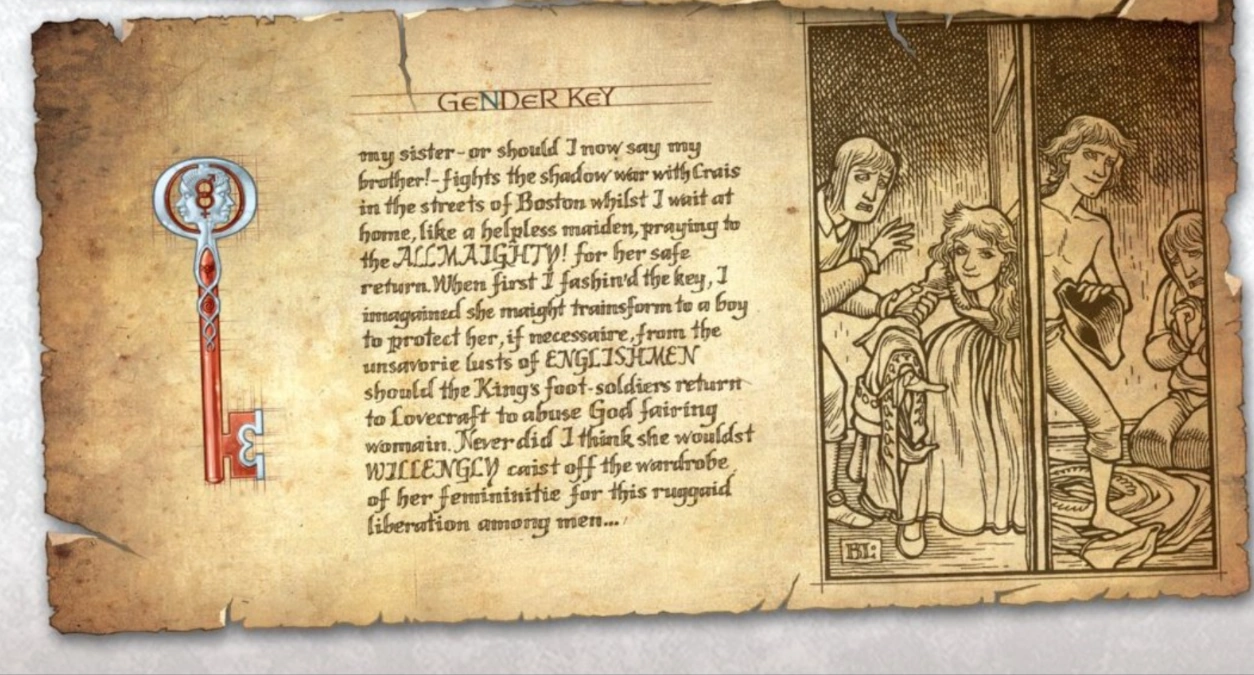 GENDER KEY
my sister-or should I now say my
brother!-fights the shadow war with Crais
in the streets of Boston whilst I wait at
home, like a helpless maiden, praying to
the ALLMAIGHTY! for her safe
return. When first I fashin'd the key, I
imagained she maight trainsform to a boy
to protect her, if necessaire, from the
unsavorie lusts of ENGLISHMEN
should the King's foot-soldiers return
to Lovecraft to abuse God fairing
womain. Never did I think she wouldst
WILLENGLY caist off the wardrobe
of her femininitie for this ruggaid
liberation among men...
BL: